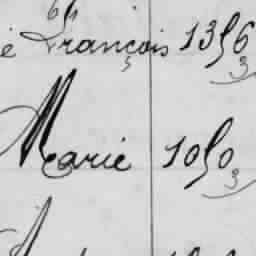 é François 1356
3
Marie 1050
3